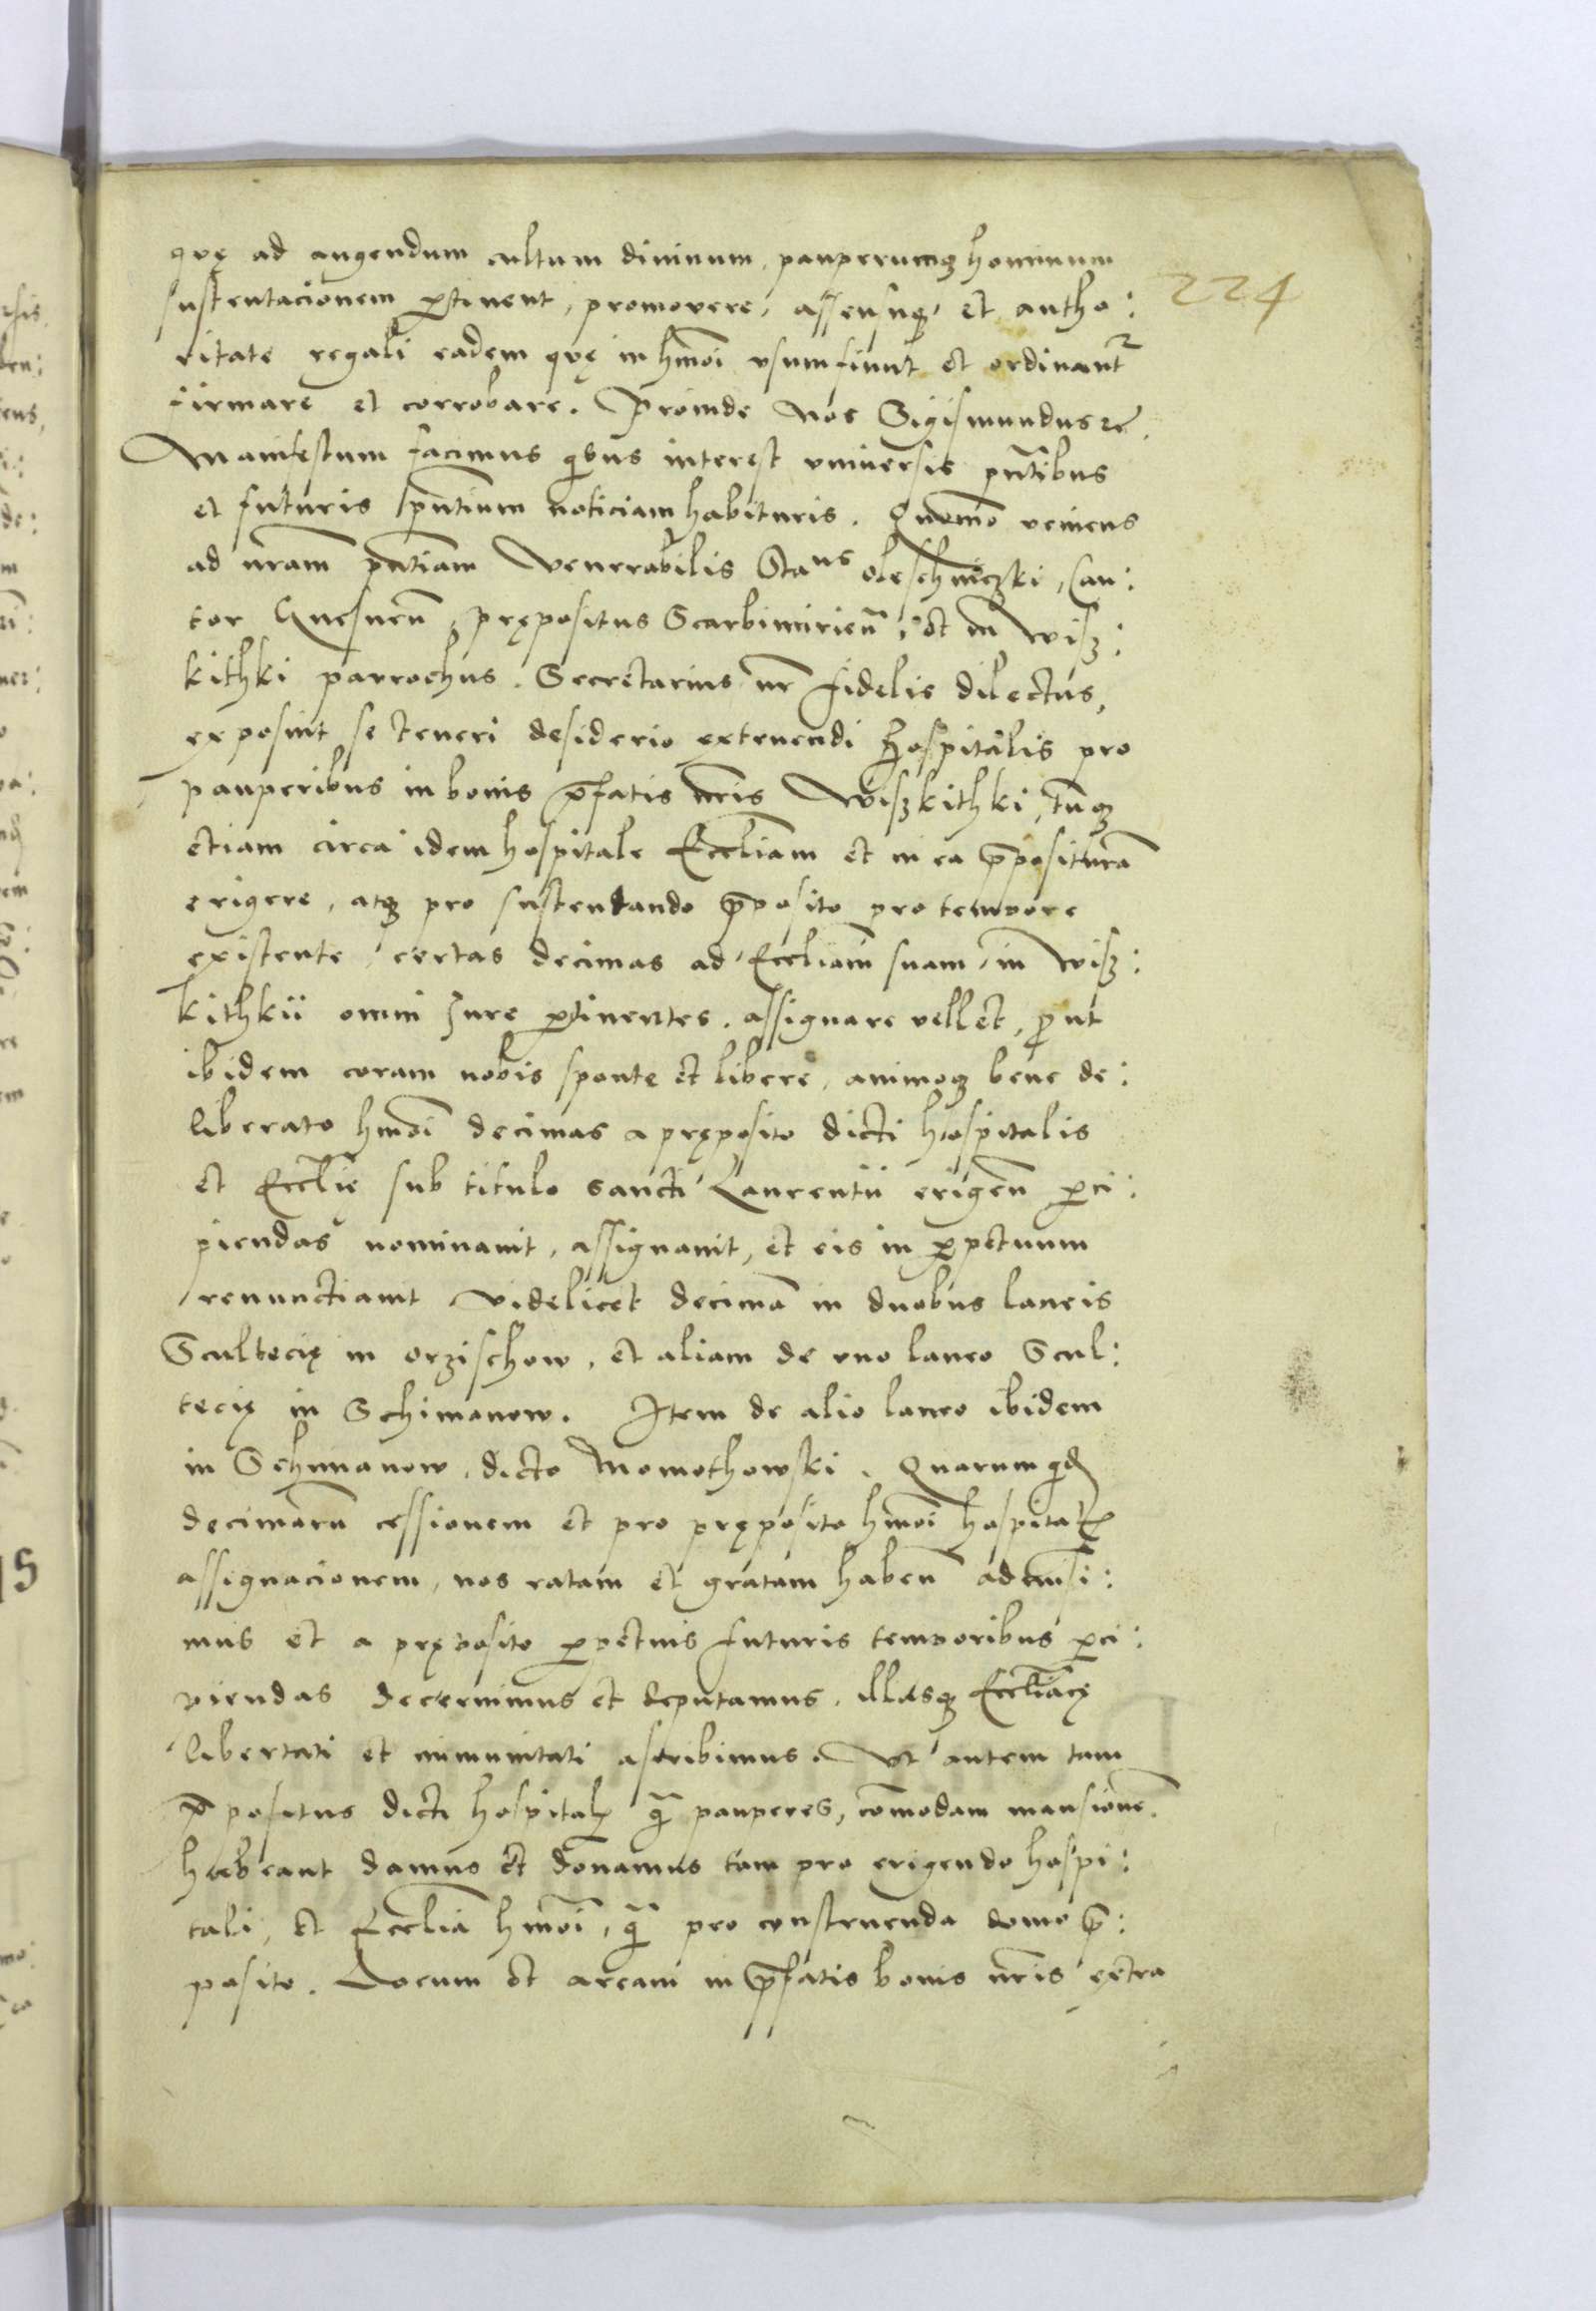 quę ad augendum cultum divinum, pauperumqꝫ hominum
sustentacionem ꝑtinent, promovere, assensuqꝫ et autho:
224
ritate regali eadem quę in hmōi usum fiunt et ordinant᷑
firmare et corrobare. Proinde nos Sigismundus ꝛc̄
Manifestum facimus qˈbus interest universis pn̄tibus
et futuris pn̄tium noticiam habituris. Quōmo veniens
ad nr̄am pn̄tiam Venerabilis Staus Oleschniczki, Can:
tor Gnesneñ, prępositus Scarbimirieñ, et in Wisz:
kithki parrochus. Secretarius nr̄ fidelis dilectus,
exposuit se teneri desiderio extruendi Hospitalis pro
pauperibus in bonis p̄fatis nr̄is Wiszkithki, tum̄qꝫ
etiam circa idem hospitale Eccl̄iam et in ea p̄positurā
erigere, atqꝫ pro sustentando p̄posito pro tempore
existente, certas decimas ad Eccl̄iam suam in Wisz:
kithkii omni Jure ꝑtinentes. assignare vellet, ꝓut
ibidem coram nobis sponte et libere, animoqꝫ bene de:
liberato hmōi decimas a pręposito dicti hospitalis
et Eccl̄ię sub titulo sancti Laurentii erigeñ ꝑci:
piendas nominavit, assignavit, et eis in ꝑpetuum
renunctiavit Videlicet decimā in duobus laneis
Scultecię in Orzischow, et aliam de uno laneo Scul:
tecię in Schimanow. Item de alio laneo ibidem
in Schimanow, dicto Momothowski. Quarum qˈd̄
decimarū cessionem et pro pręposito hmōi hospitalꝭ
assignacionem, nos ratam et gratam habeñ admisi:
mus et a pręposito ꝑpetuis futuris temporibus ꝑci:
piendas decernimus et deputamus. illasqꝫ Eccl̄iacę
libertati et immunitati ascribimus. Ut autem tam
p̄positus dicti hospitalꝭ qˈ̄ pauperes, cōmodam mansionē
habeant damus et donamus tam pro erigendo hospi:
tali, et Eccl̄ia hmōi, qˈ̄ pro construenda domo p̄:
posito. Locum et aream in p̄fatis bonis nr̄is extra